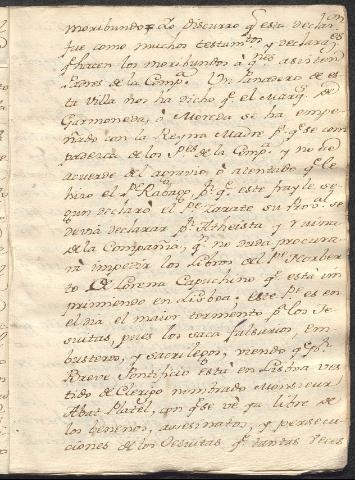 moribundo, q.e yo discurro q.e esta declar.on
fue como muchos testam.tos y declarac.es
q.e hacen los moribundos à q.nes asisten
Padres de la Comp.a Un Panadero de es
ta Villa nos ha dicho q.e el Marq.s de
Garmoneda, ò Moneda se ha empe
ñado con la Reyna Madre p.a q.e se com
padezca de los P.es de la Comp.a y no se
acuerde del agravio, ò atentado q.e le
hizo el P.e Rabago, p.r q.e este frayle se
gun declarò el P.e Zarate su Prov.al se
devia declarar p.r Atheista y ruina
de la Compañia, q.n no duda procura
rà impedir los Libros del P.e Norber
to de Lorena Capuchino q.e està im
primiendo en Lisboa; este P.e es en
el dia el maior tormento p.a los Je
suitas, pues los saca falsarios, em
busteros, y sacrilegos, siendo q.e p.r
Breve Pontificio està en Lisboa ves
tido de Clerigo nombrado Monsieur
Abat Platel, con q.e se vè ya libre de
los benenos, asesinatos, y persecu
ciones de los Jesuitas q.e tantas veces